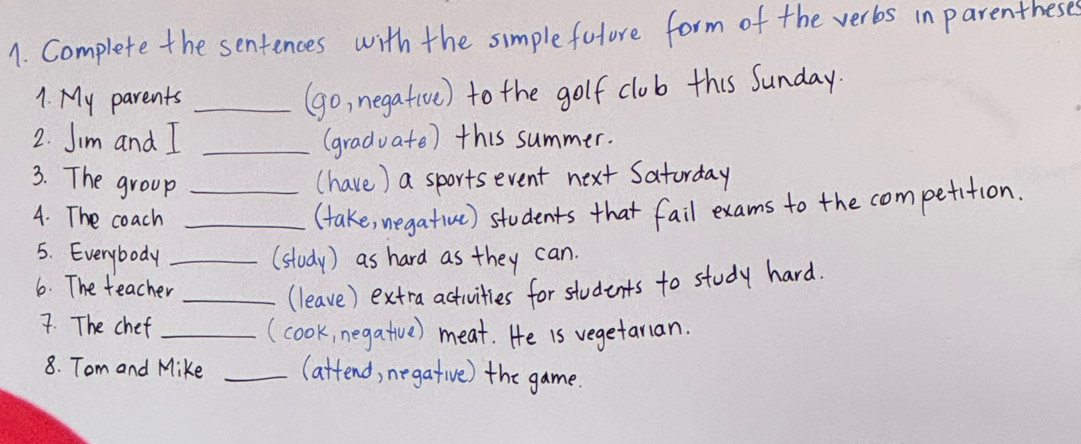 1. Complete the sentences with the simple future form of the verbs in parentheses
1. My parents ______ (go, negative) to the golf club this Sunday.
2. Jim and I ______ (graduate) this summer.
3. The group ______ (have) a sports event next Saturday
4. The coach ______ (take, negative) students that fail exams to the competition.
5. Everybody ______ (study) as hard as they can.
6. The teacher ______ (leave) extra activities for students to study hard.
7. The chef ______ (cook, negative) meat. He is vegetarian.
8. Tom and Mike ______ (attend, negative) the game.